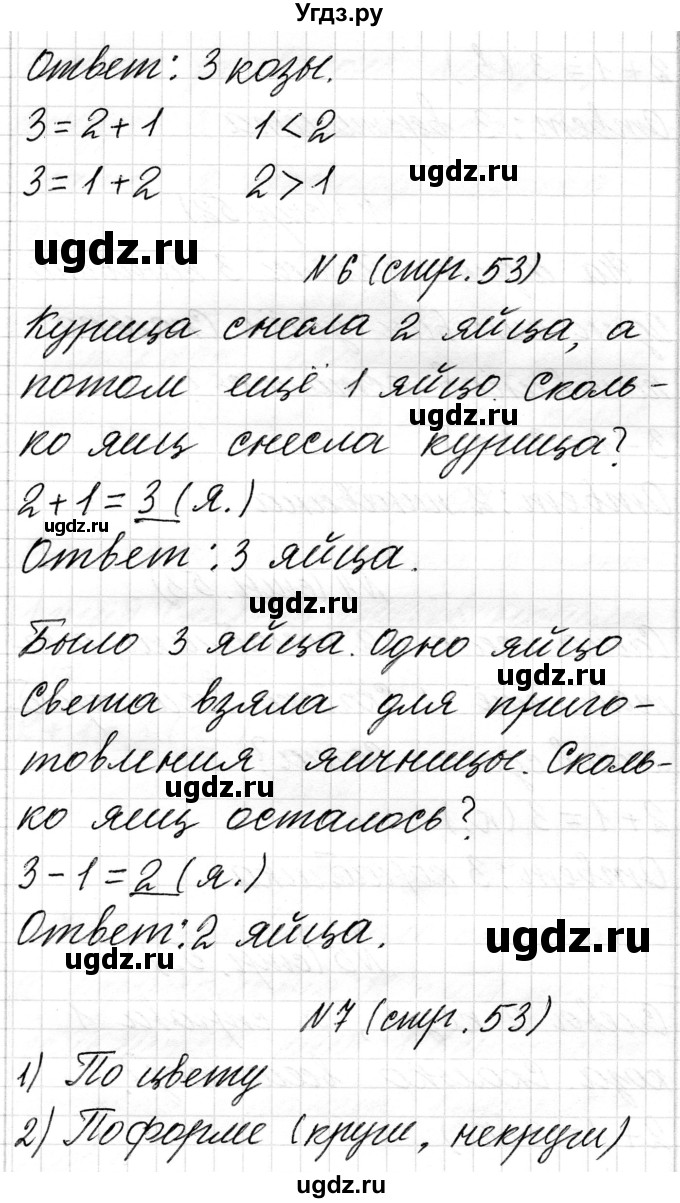 Угдз.ру
Ответ: 3 козы.
3=2+1 1<2
3=1+2 2>1
ugdz.ru
ugdz.ru
№6 (стр. 53)
Курица снесла 2 яйца, а
потом ещё 1 яйцо. Сколь-
ugdz.ru
ко яиц снесла курица?
2+1=3 (я.)
ugdz.ru
Ответ: 3 яйца.
ugdz.ru
Было 3 яйца. Одно яйцо
ugdz.ru
Света взяла для приго-
товления яичницы. Сколь-
ugdz.ru
ко яиц осталось?
3-1=2 (я.)
Ответ: 2 яйца.
ugdz.ru
ugdz.ru
№7 (стр. 53)
1) По цвету
2) По форме (кругл, некругл)
ugdz.ru